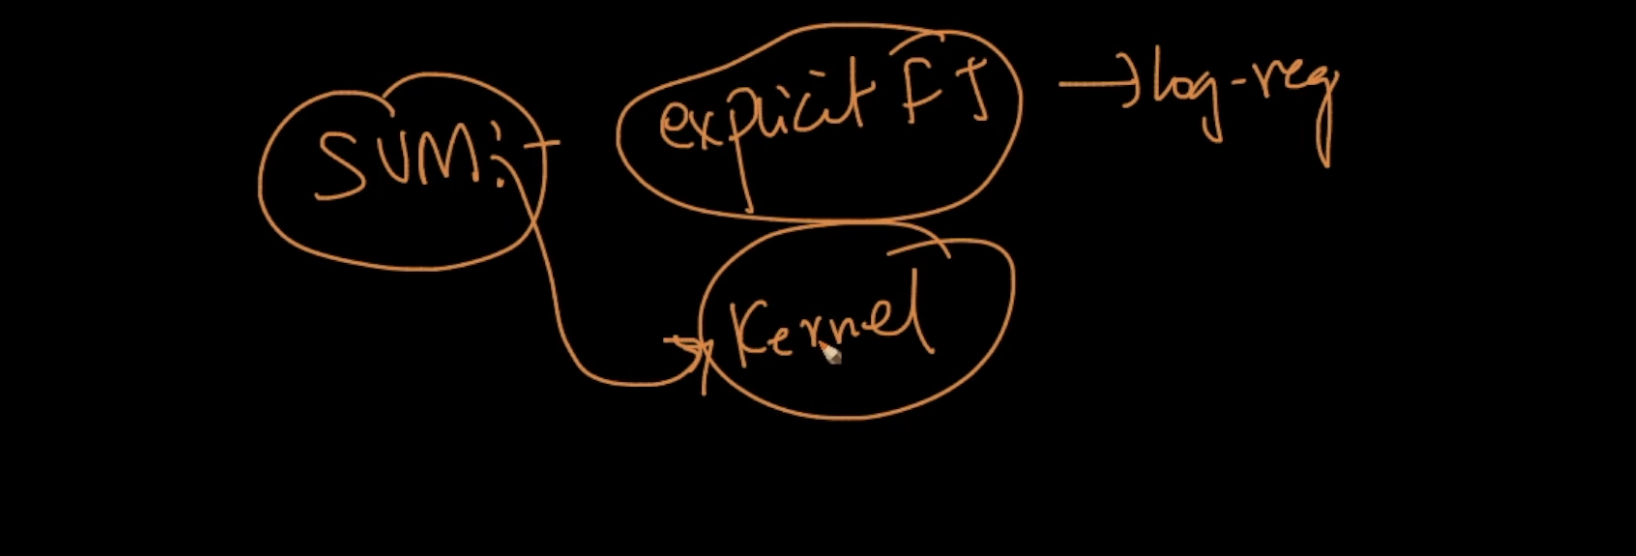 SVM:- explicit FT → log-reg
Kernel